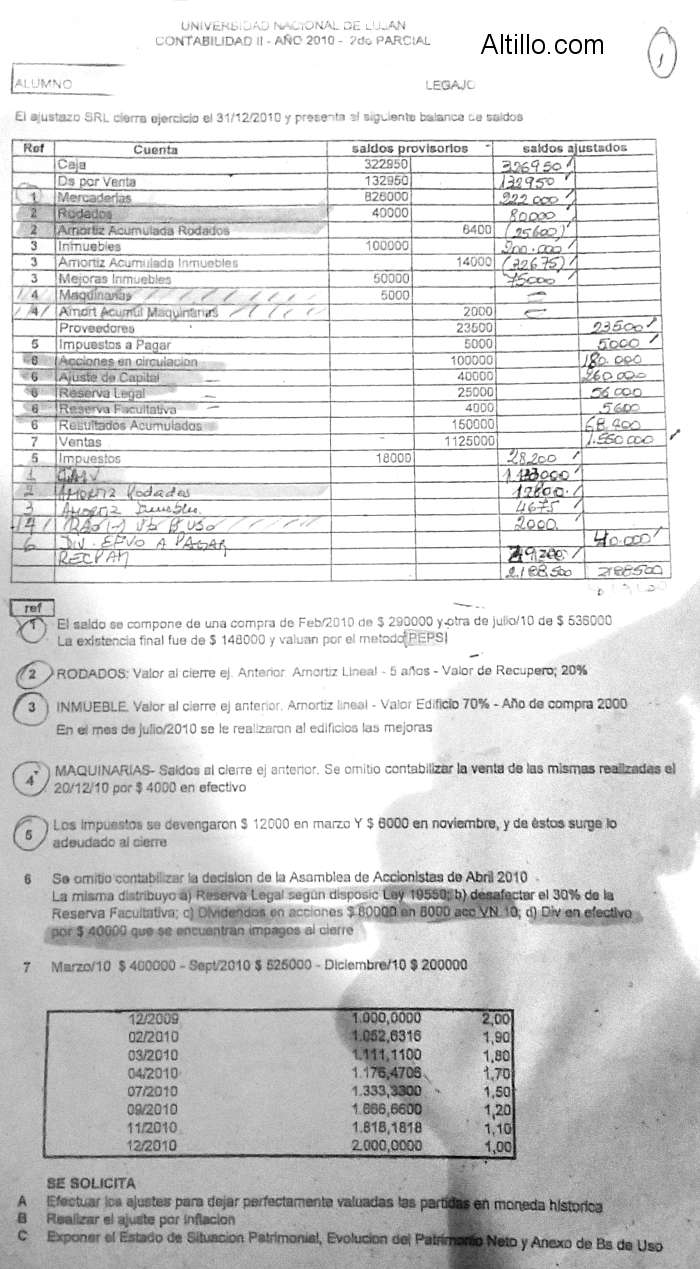 UNIVERSIDAD NACIONAL DE LUJAN
CONTABILIDAD II - AÑO 2010 - 2do PARCIAL
Altillo.com
1
ALUMNO LEGAJO
El ajustazo SRL cierra ejercicio el 31/12/2010 y presenta el siguiente balance de saldos
Ref Cuenta saldos provisorios saldos ajustados
Caja 322950 326950
Ds por Venta 132950 132950
1 Mercaderias 826000 222000
2 Rodados 40000 80000
2 Amortiz Acumulada Rodados 6400 (25600)
3 Inmuebles 100000 200.000
3 Amortiz Acumulada Inmuebles 14000 (32675)
3 Mejoras Inmuebles 50000 75000
4 Maquinarias 5000 —
4 Amort Acumul Maquinarias 2000 —
Proveedores 23500 23500
5 Impuestos a Pagar 5000 5000
6 Acciones en circulacion 100000 180.000
6 Ajuste de Capital 40000 260.000
6 Reserva Legal 25000 56000
6 Reserva Facultativa 4000 5600
6 Resultados Acumulados 150000 68.400
7 Ventas 1125000 1.550.000
5 Impuestos 18000 28.200
1 CMV
2 Amortiz Rodados 12800
3 Amortiz Inmueble 4675
4 Vta B Uso 2000
6 DIV. EFVO A PAGAR 40.000
RECPAM
2.188.500 2188500
ref
1 El saldo se compone de una compra de Feb/2010 de $ 290000 y otra de julio/10 de $ 536000
La existencia final fue de $ 148000 y valuan por el metodo PEPSI
2 RODADOS: Valor al cierre ej. Anterior. Amortiz Lineal - 5 años - Valor de Recupero; 20%
3 INMUEBLE. Valor al cierre ej anterior. Amortiz lineal - Valor Edificio 70% - Año de compra 2000
En el mes de julio/2010 se le realizaron al edificios las mejoras
4 MAQUINARIAS- Saldos al cierre ej anterior. Se omitio contabilizar la venta de las mismas realizadas el
20/12/10 por $ 4000 en efectivo
5 Los Impuestos se devengaron $ 12000 en marzo Y $ 6000 en noviembre, y de éstos surge lo
adeudado al cierre
6 Se omitio contabilizar la decision de la Asamblea de Accionistas de Abril 2010
La misma distribuyo a) Reserva Legal según disposic Ley 19550; b) desafectar el 30% de la
Reserva Facultativa; c) Dividendos en acciones $ 80000 en 8000 acc VN 10; d) Div en efectivo
por $ 40000 que se encuentran impagos al cierre
7 Marzo/10 $ 400000 - Sept/2010 $ 525000 - Diciembre/10 $ 200000
12/2009 1.000,0000 2,00
02/2010 1.052,6316 1,90
03/2010 1.111,1100 1,80
04/2010 1.176,4706 1,70
07/2010 1.333,3300 1,50
09/2010 1.666,6600 1,20
11/2010 1.818,1818 1,10
12/2010 2.000,0000 1,00
SE SOLICITA
A Efectuar los ajustes para dejar perfectamente valuadas las partidas en moneda historica
B Realizar el ajuste por inflacion
C Exponer el Estado de Situacion Patrimonial, Evolucion del Patrimonio Neto y Anexo de Bs de Uso